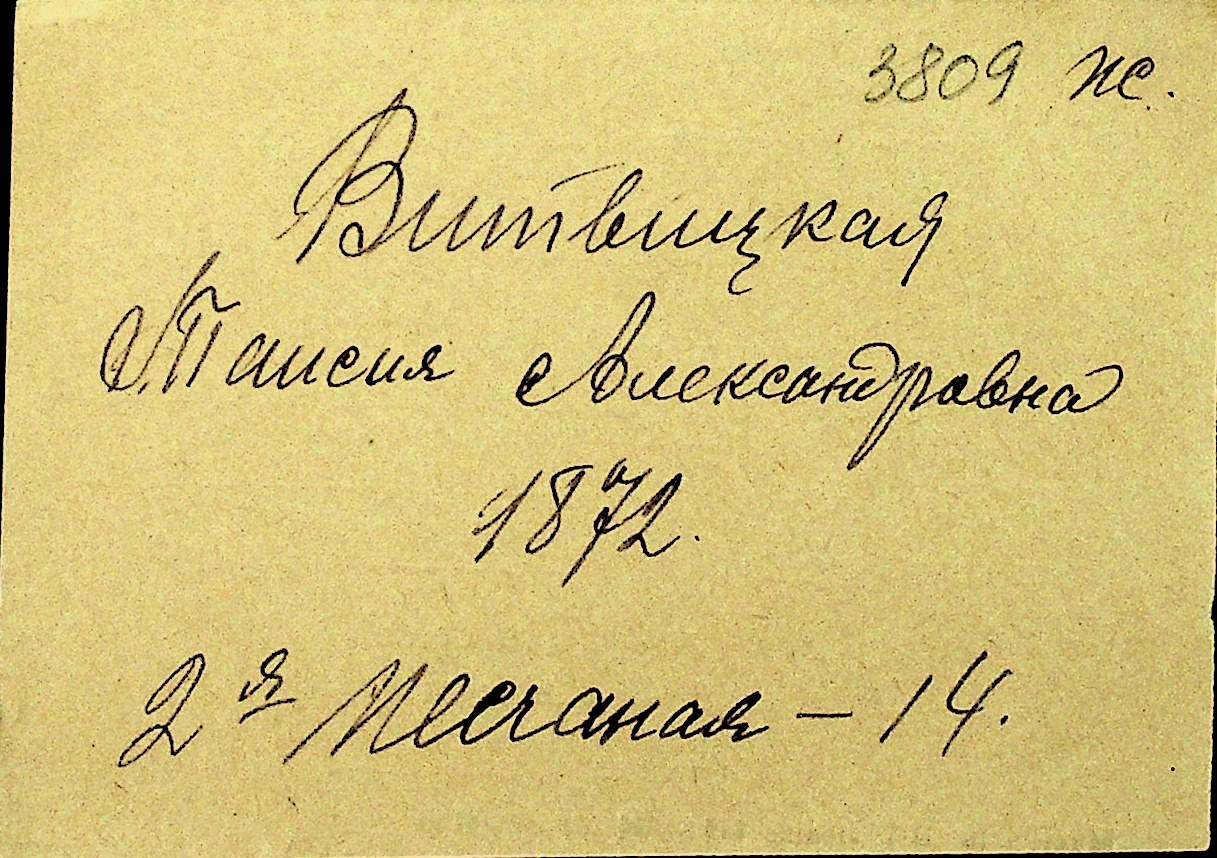 3809 ж.
Витвицкая
Таисия Александровна
1872.
2я Песчаная – 14.